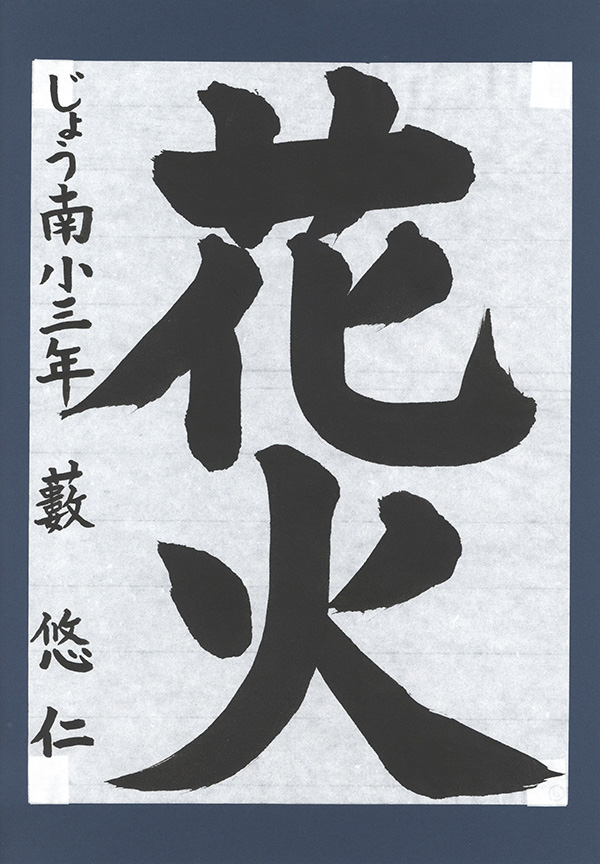 花火
じょう南小三年 藪 悠仁